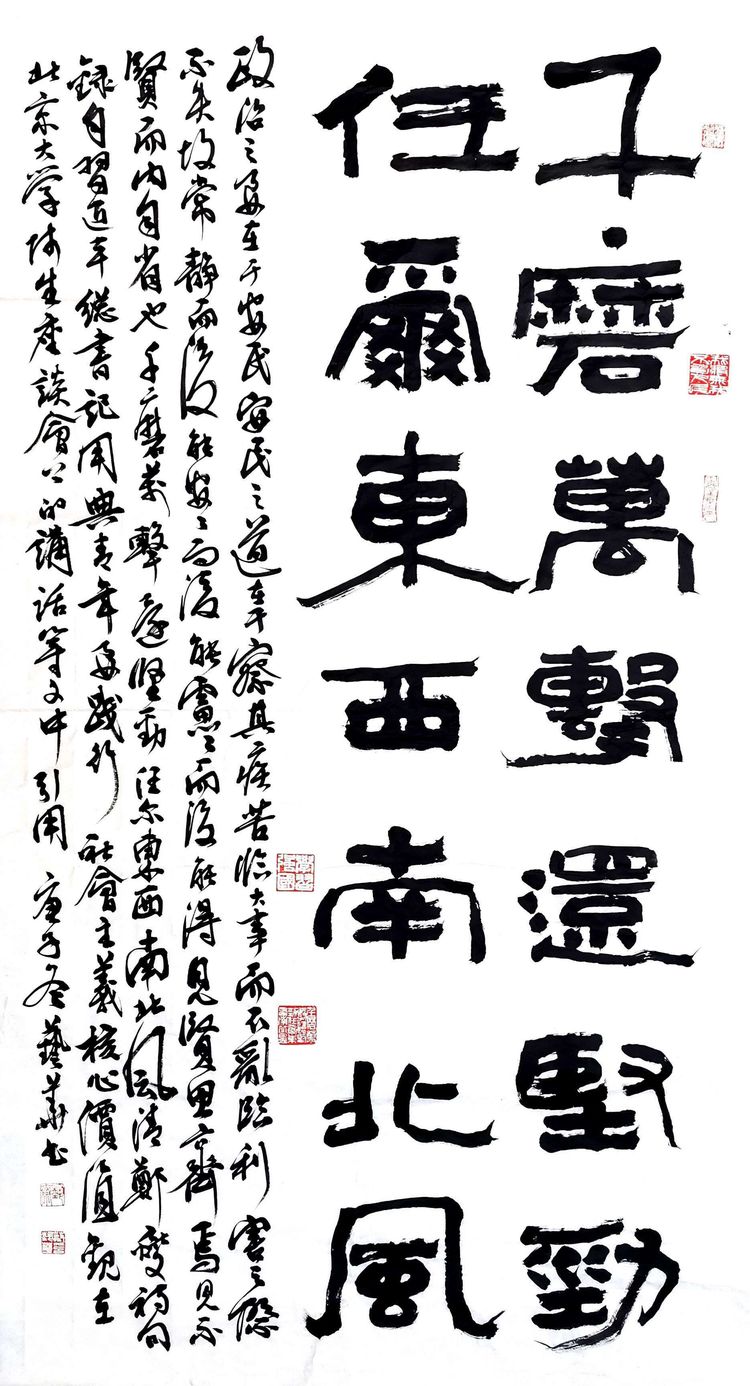 千磨萬擊還堅勁
任爾東西南北風
政治之要在于安民安民之道在于察其疾苦臨大事而不亂臨利害之際
不失故常靜而後能安〻而後能慮〻而後能得見賢思齊焉見不
賢而内自省也千磨萬擊還堅勁任尔東西南北风清鄭燮詩句
録自習近平總書記用典青年要踐行社會主義核心價值觀在
北京大学师生座談會上的講話等文中引用 庚子冬藝華书